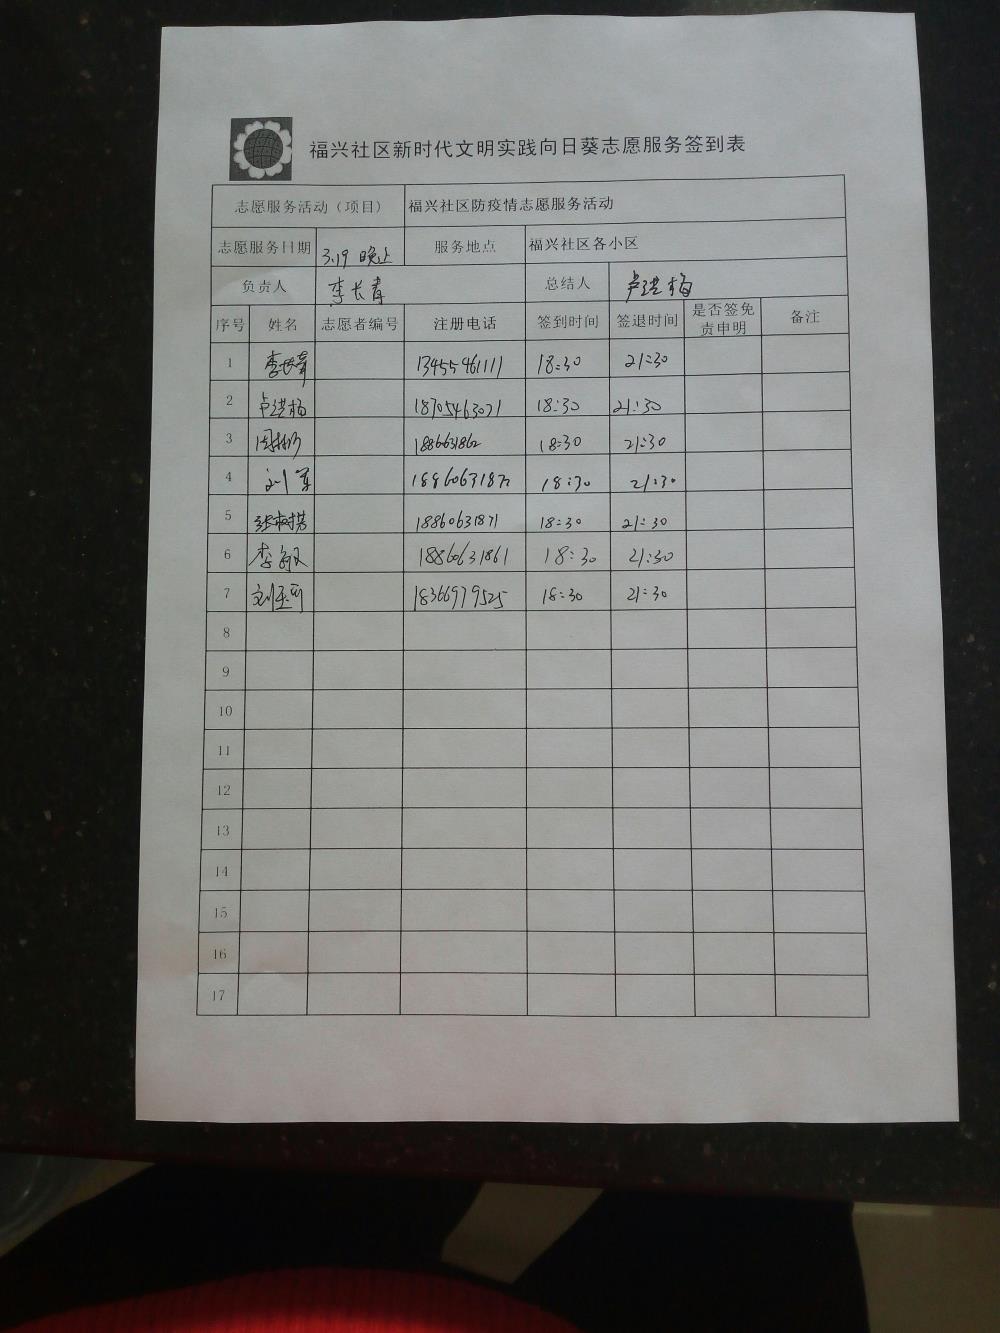 福兴社区新时代文明实践向日葵志愿服务签到表
志愿服务活动（项目） 福兴社区防疫情志愿服务活动
志愿服务日期 3.19 晚上 服务地点 福兴社区各小区
负责人 李长青 总结人 卢洪梅
序号 姓名 志愿者编号 注册电话 签到时间 签退时间 是否签免责申明 备注
1 李长青 13455461111 18:30 21:30
2 卢洪梅 18705463071 18:30 21:30
3 18:30 21:30
4 刘军 18:30 21:30
5 18860631871 18:30 21:30
6 李敏 18860631861 18:30 21:30
7 18366979525 18:30 21:30
8
9
10
11
12
13
14
15
16
17